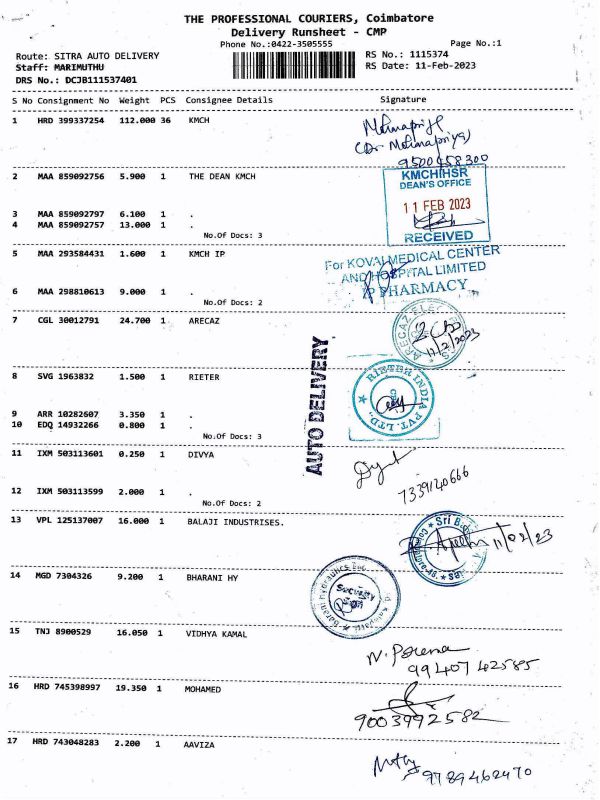 THE PROFESSIONAL COURIERS, Coimbatore
Delivery Runsheet - CMP
Phone No.:0422-3505555
Page No.:1
Route: SITRA AUTO DELIVERY
RS No.: 1115374
Staff: MARIMUTHU
RS Date: 11-Feb-2023
DRS No.: DCJB111537401
S No Consignment No Weight PCS Consignee Details Signature
1 HRD 399337254 112.000 36 KMCH
(Dr Mohanapriya)
9500458300
2 MAA 859092756 5.900 1 THE DEAN KMCH
KMCHIHSR
DEAN'S OFFICE
11 FEB 2023
RECEIVED
3 MAA 859092797 6.100 1 .
4 MAA 859092757 13.000 1 .
No.Of Docs: 3
5 MAA 293584431 1.600 1 KMCH IP
For KOVAI MEDICAL CENTER
AND HOSPITAL LIMITED
IP PHARMACY
6 MAA 298810613 9.000 1 .
No.Of Docs: 2
7 CGL 30012791 24.700 1 ARECAZ
11/2/2023
AUTO DELIVERY
8 SVG 1963832 1.500 1 RIETER
RIETER INDIA PVT. LTD.,
9 ARR 10282607 3.350 1 .
10 EDQ 14932266 0.800 1 .
No.Of Docs: 3
11 IXM 503113601 0.250 1 DIVYA
7339140666
12 IXM 503113599 2.000 1 .
No.Of Docs: 2
13 VPL 125137007 16.000 1 BALAJI INDUSTRISES.
11/02/23
14 MGD 7304326 9.200 1 BHARANI HY
Security
15 TNJ 8900529 16.050 1 VIDHYA KAMAL
9940742585
16 HRD 745398997 19.350 1 MOHAMED
9003992582
17 HRD 743048283 2.200 1 AAVIZA
9789462470